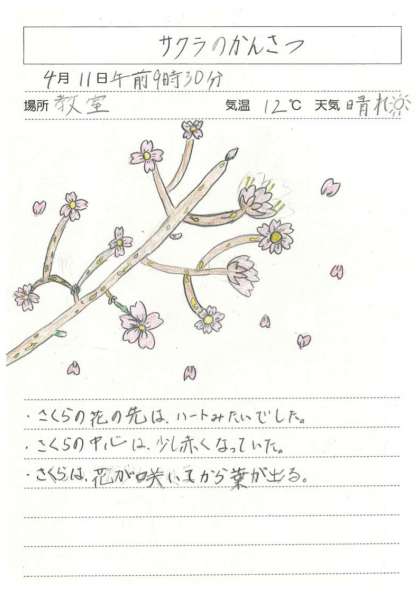 サクラのかんさつ
4月11日午前9時30分
場所 教室 気温 12℃ 天気 晴れ
・さくらの花の先は、ハートみたいでした。
・さくらの中心は、少し赤くなっていた。
・さくらは、花が咲いてから葉が出る。